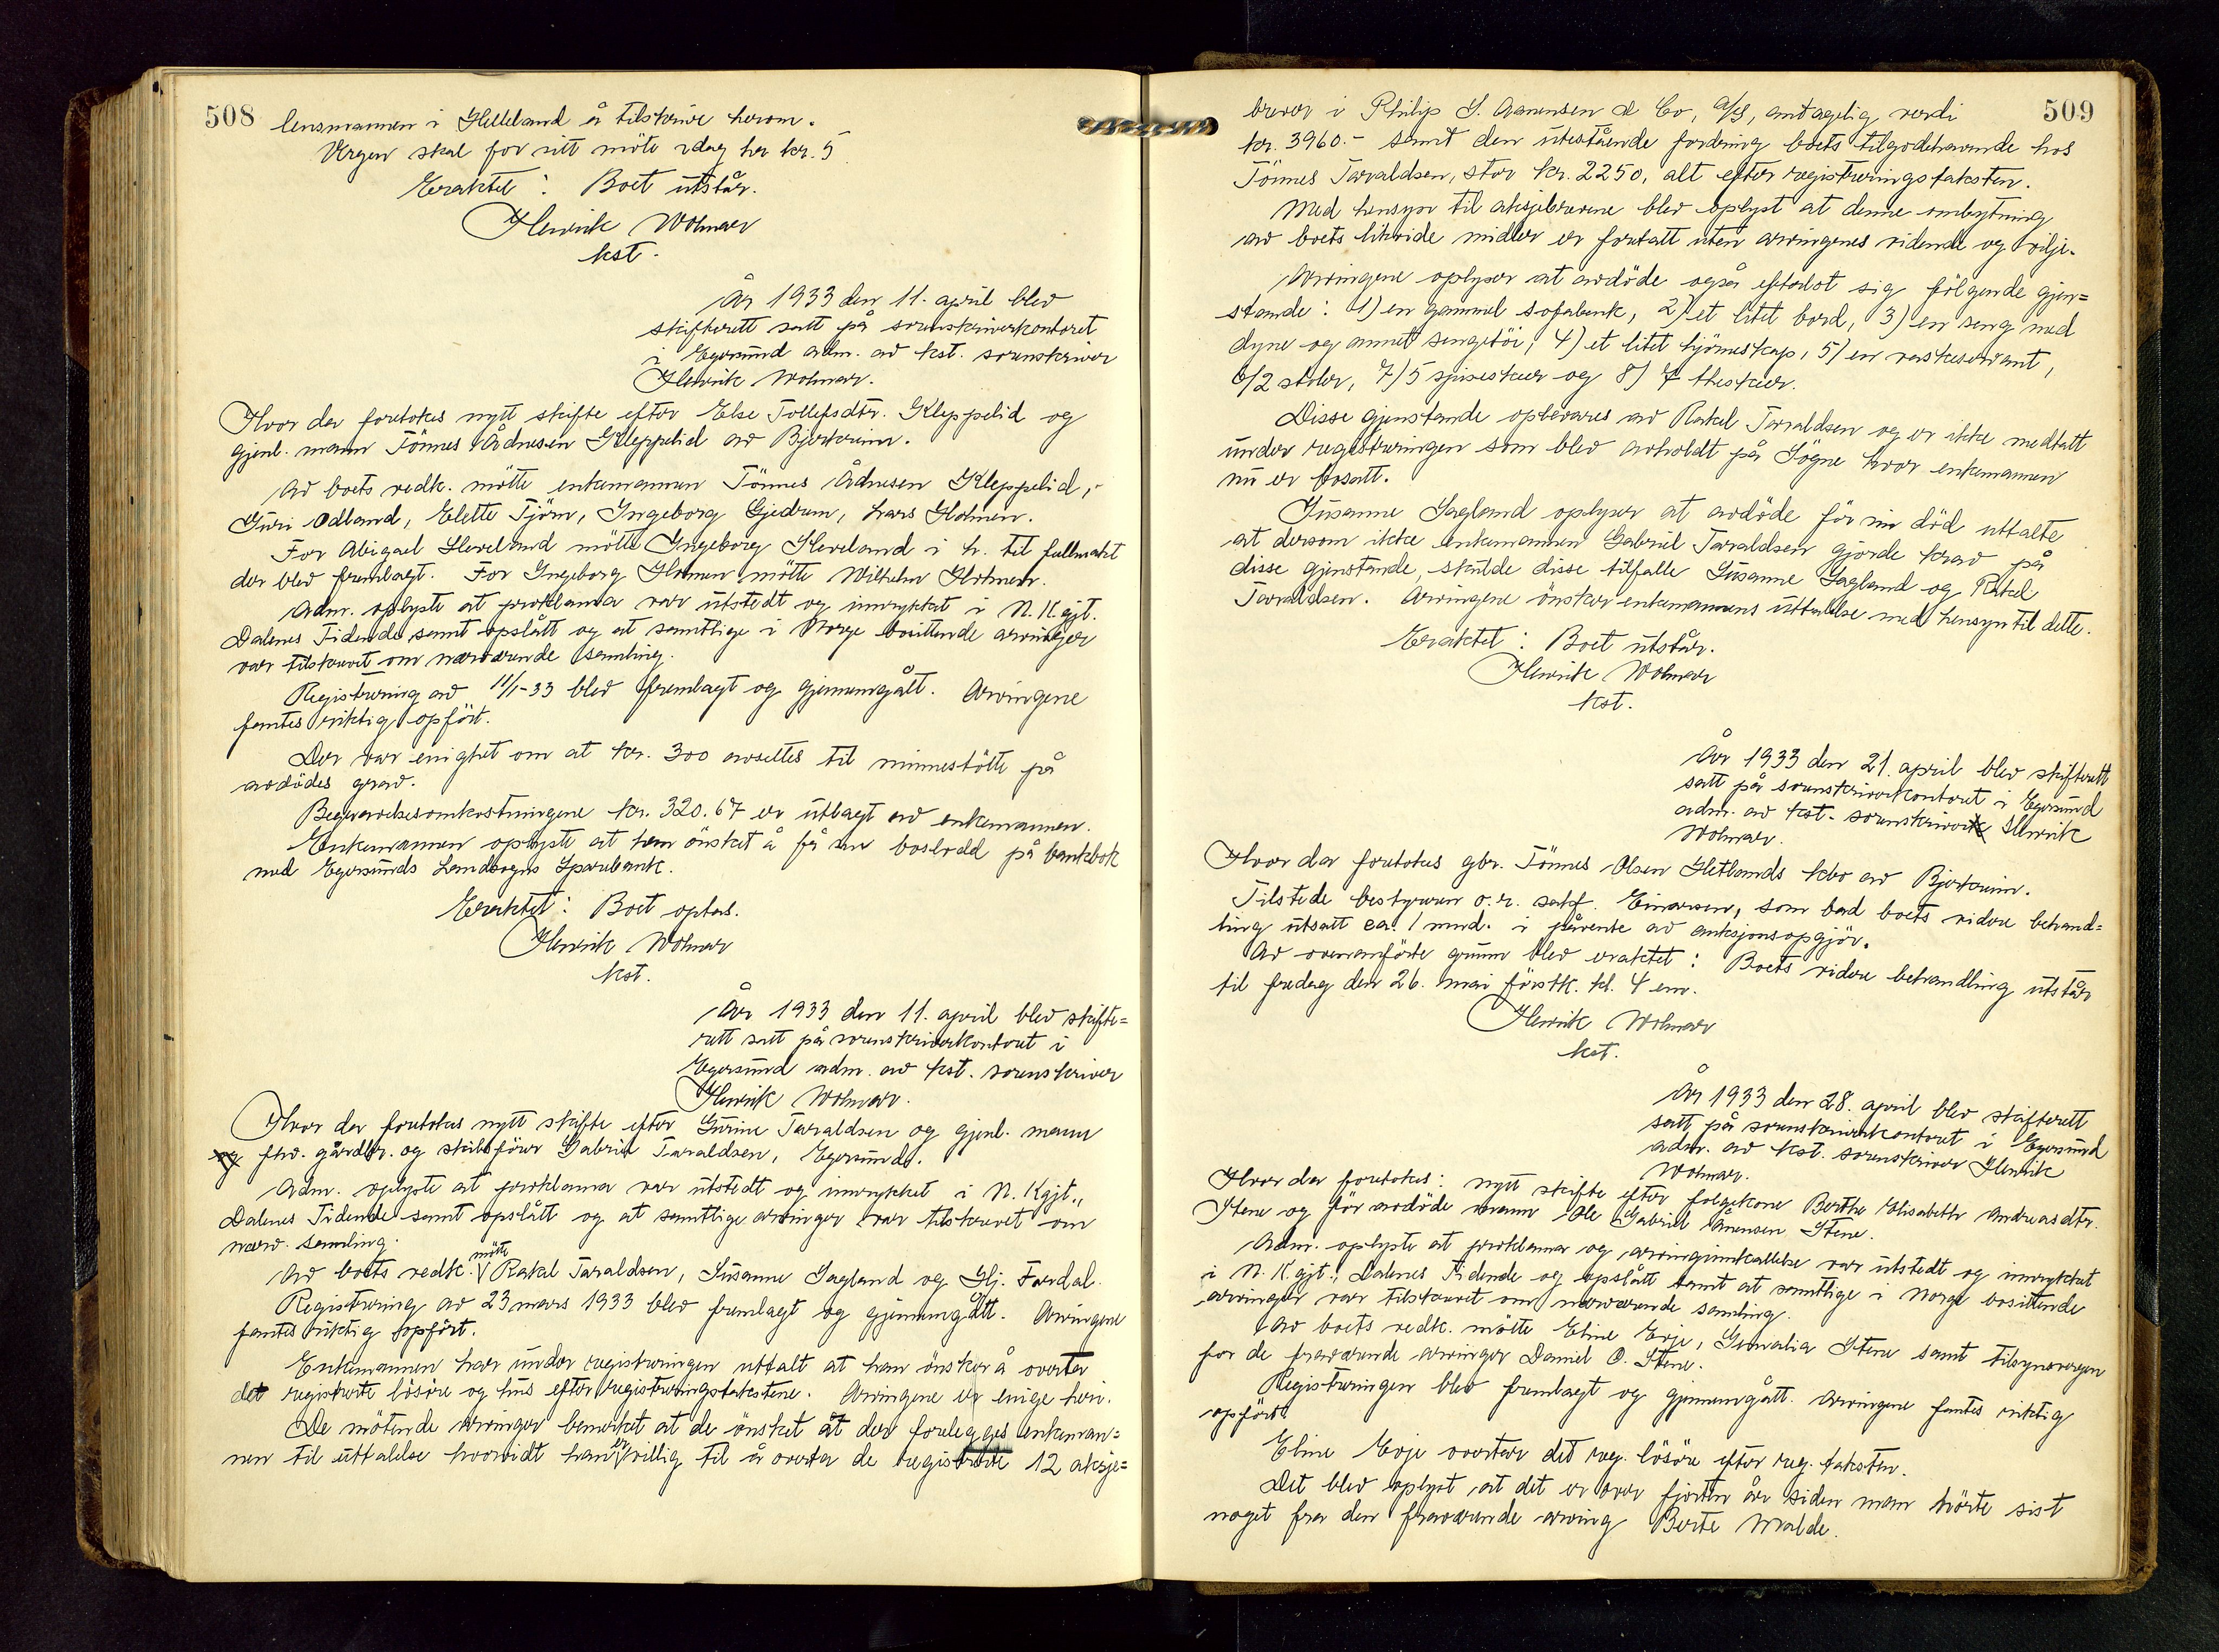 508
lensmannen i Helleland å tilskrive herom.
Vergen skal for sitt möte idag ha kr. 5
Eraktet: Boet utstår.
Henrik Wolmar
kst.
År 1933 den 11. april blev
skifterett satt på sorenskriverkontoret
i Egersund adm. av kst. sorenskriver
Henrik Wolmar.
Hvor da foretokes nytt skifte efter Else Tollefsdtr. Kleppelid og
gjenl. mann Tönnes Ådnesen Kleppelid av Bjerkreim.
Av boets vedk. mötte enkemannen Tönnes Ådnesen Kleppelid,
Guri Odland, Elette Tjörn, Ingeborg Gjedrem, Lars Holmen.
For Abigael Heveland mötte Ingeborg Heveland i h. til fullmakt
der blev fremlagt. For Ingeborg Holmen mötte Wilhelm Holmen.
Adm. oplyste at proklama var utstedt og innrykket i N. K.gjt.
Dalenes Tidende samt opslått og at samtlige i Norge bosittende arvinger
var tilskrevet om nærværende samling.
Registrering av 11/1-33 blev fremlagt og gjennemgått. Arvingene
fantes riktig opfört.
Der var enighet om at kr. 300 avsettes til minnestötte på
avdödes grav.
Begravelsesomkostningene kr. 320.67 er utlagt av enkemannen.
Enkemannen oplyste at han önsket å få sin boslodd på bankbok
med Egersunds Landsogns Sparebank.
Eraktet: Boet optas.
Henrik Wolmar
kst.
År 1933 den 11. april blev skifte=
rett satt på sorenskriverkontoret i
Egersund adm. av kst. sorenskriver
Henrik Wolmar.
Hvor da foretokes nytt skifte efter Gurine Taraldsen og gjenl. mann
og fhv. gårdbr. og skibsförer Gabriel Taraldsen, Egersund.
Adm. oplyste at proklama var utstedt og innrykket i N. Kgjt.,
Dalenes Tidende samt opslått og at samtlige arvinger var tilskrevet om
nærv. samling.
Av boets vedk. mötte Rakel Taraldsen, Susanne Sagland og Hj. Fardal.
Registrering av 23 mars 1933 blev fremlagt og gjennemgått. Arvingene
fantes riktig opfört.
Enkemannen har under registreringen uttalt at han önsker å overta
det registrerte lösöre og hus efter registreringstakstene. Arvingene er enige heri.
De mötende arvinger bemerket at de önsket at der forelegges enkeman=
nen til uttalelse hvorvidt han er villig til å overta de registrerte 12 aksje=
509
brever i Philip S. Aanensen & Co, A/S, antagelig verdi
kr. 3960.- samt den utestående fordring boets tilgodehavende hos
Tönnes Taraldsen, stor kr. 2250, alt efter registreringstaksten.
Med hensyn til aksjebrevene blev oplyst at denne ombytning
av boets likvide midler er foretatt uten arvingenes vidende og vilje.
Arvingene oplyser at avdöde også efterlot sig fölgende gjen=
stande: 1) en gammel sofabenk, 2) et litet bord, 3) en seng med
dyne og annet sengetöi, 4) et litet hjörneskap, 5) en vaskeservant,
6) 2 stoler, 7) 5 spiseskeer og 8) 7 theskeer.
Disse gjenstande opbevares av Rakel Taraldsen og er ikke medtatt
under registreringen som blev avholdt på Sögne hvor enkemannen
nu er bosatt.
Susanne Sagland oplyser at avdöde för sin död uttalte
at dersom ikke enkemannen Gabriel Taraldsen gjorde krav på
disse gjenstande, skulde disse tilfalle Susanne Sagland og Rakel
Taraldsen. Arvingene önsker enkemannens uttalelse med hensyn til dette.
Eraktet: Boet utstår.
Henrik Wolmar
kst.
År 1933 den 21. april blev skifterett
satt på sorenskriverkontoret i Egersund
adm. av kst. sorenskriver Henrik
Wolmar.
Hvor da foretokes gbr. Tönnes Olsen Hetlands kbo av Bjerkreim.
Tilstede bestyreren o.r. sakf. Einarsen, som bad boets videre behand=
ling utsatt ca. 1 mnd. i påvente av auksjonsopgjör.
Av ovenanförte grunn blev eraktet: Boets videre behandling utstår
til fredag den 26. mai förstk. kl. 4 em.
Henrik Wolmar
kst.
År 1933 den 28. april blev skifterett
satt på sorenskriverkontoret i Egersund
adm. av kst. sorenskriver Henrik
Wolmar.
Hvor da foretokes: nytt skifte efter folgekone Berthe Elisabeth Andreasdtr.
Stene og för avdöde mann Ole Gabriel Aanensen Stene.
Adm. oplyste at proklama og arvinginnkallelse var utstedt og innrykket
i N. K.gjt., Dalenes Tidende og opslått samt at samtlige i Norge bosittende
arvinger var tilskrevet om nærværende samling.
Av boets vedk. mötte Eline Eeje, Gunvalia Stene samt tilsynsvergen
for de fraværende arvinger Daniel O. Stene.
Registreringen blev fremlagt og gjennemgått. Arvingene fantes riktig
opfört.
Eline Eeje overtar det reg. lösöre efter reg. taksten.
Det blev oplyst at det er over fjorten år siden man hörte sist
noget fra den fraværende arving Berte Malde.